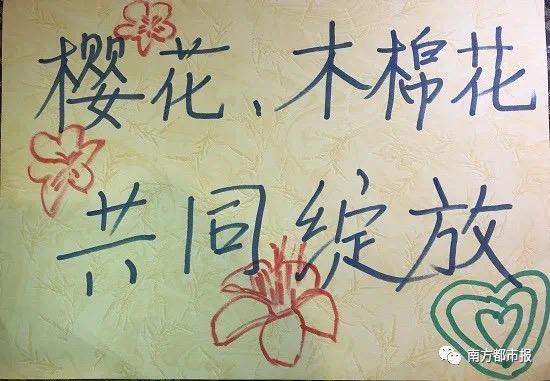 樱花、木棉花
共同绽放
南方都市报